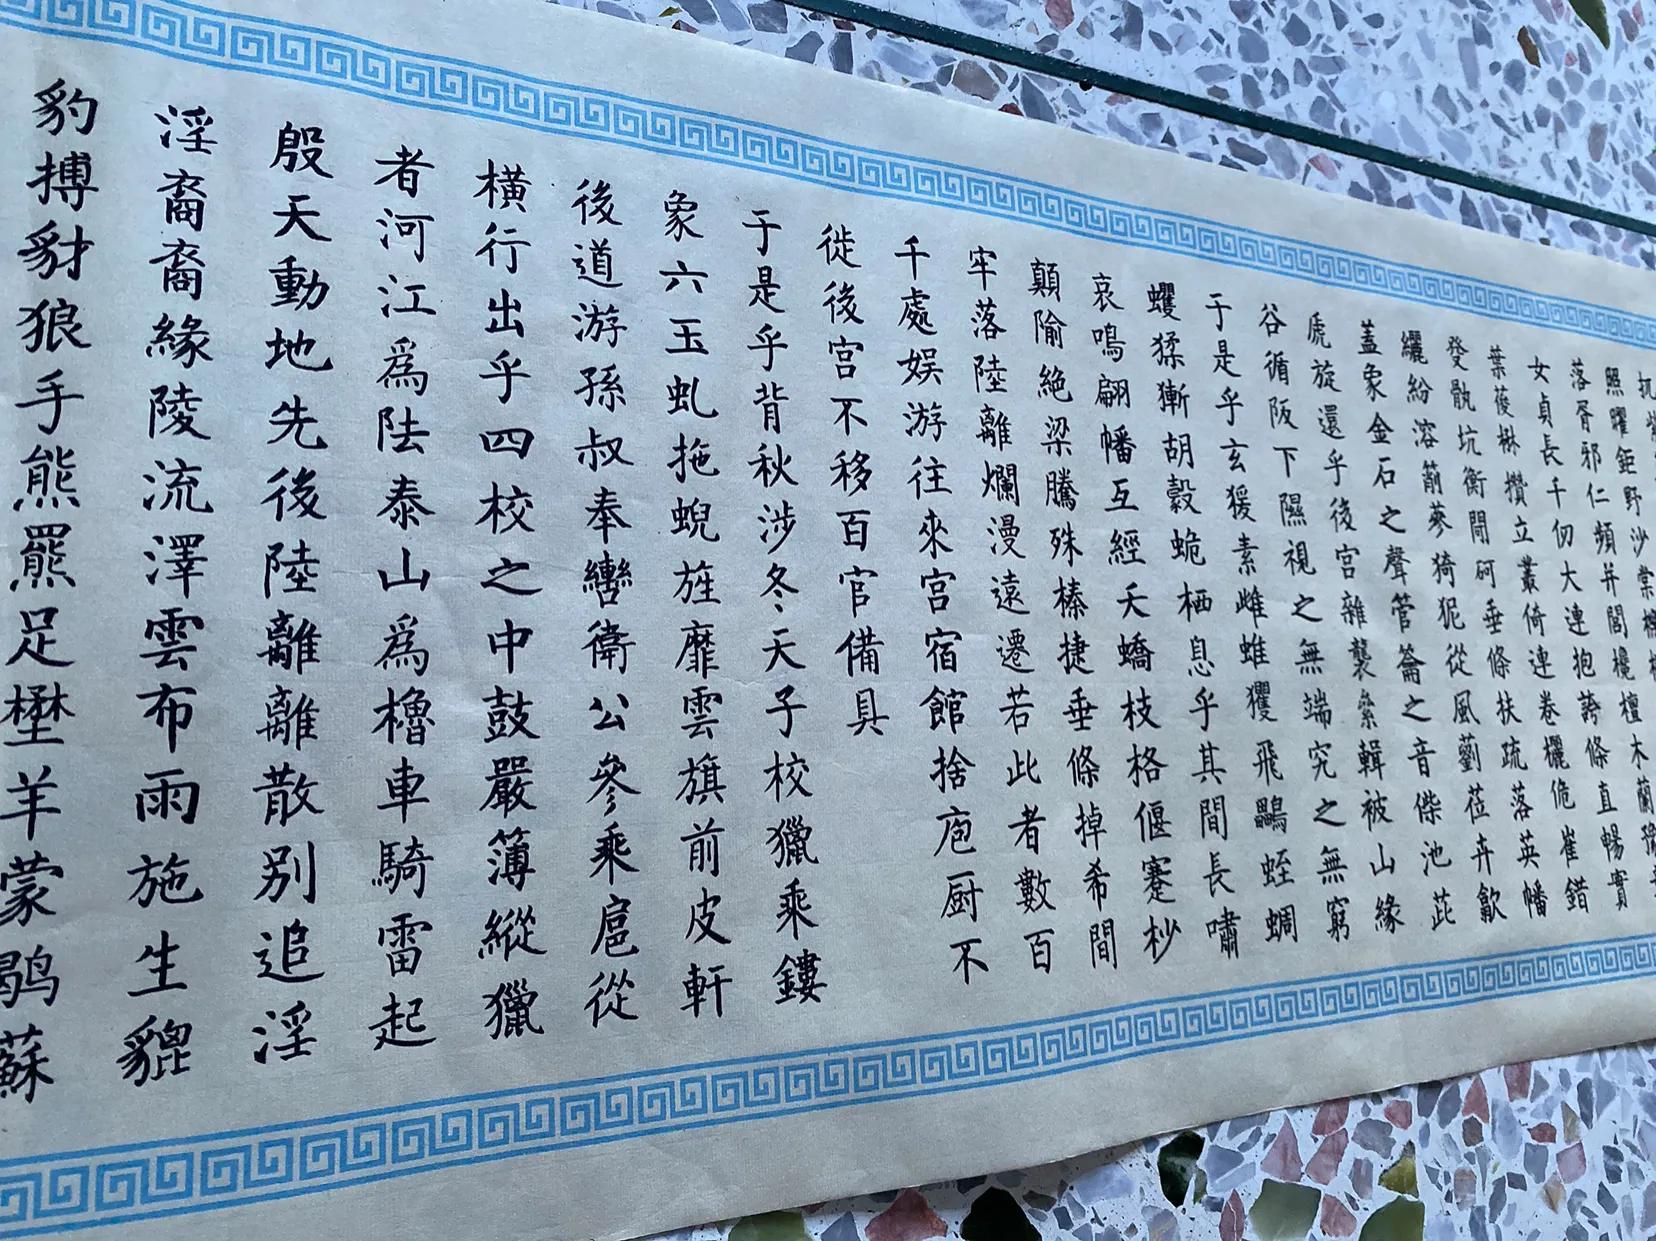 照曜鉅野沙棠櫟
落胥邪仁頻并閭欃檀木蘭豫章
女貞長千仞大連抱誇條直暢實
葉葰楙攢立叢倚連卷欐佹崔錯
發骫坑衡閜砢垂條扶疏落英幡
纚紛溶萷蔘猗狔從風藰莅卉歙
蓋象金石之聲管籥之音傑池茈
虒旋還乎後宮雜襲絫輯被山緣
谷循阪下隰視之無端究之無窮
于是乎玄猨素雌蜼玃飛鸓蛭蜩
蠼猱獑胡豰蛫栖息乎其間長嘯
哀鳴翩幡互經夭蟜枝格偃蹇杪
顛隃絕梁騰殊榛捷垂條掉希間
牢落陸離爛漫遠遷若此者數百
千處娛游往來宮宿館捨庖厨不
徙後宮不移百官備具
于是乎背秋涉冬天子校獵乘鏤
象六玉虬拖蜺旌靡雲旗前皮軒
後道游孫叔奉轡衛公參乘扈從
橫行出乎四校之中鼓嚴簿縱獵
者河江爲阹泰山爲櫓車騎雷起
殷天動地先後陸離離散別追淫
淫裔裔緣陵流澤雲布雨施生貔
豹搏豺狼手熊羆足壄羊蒙鶡蘇